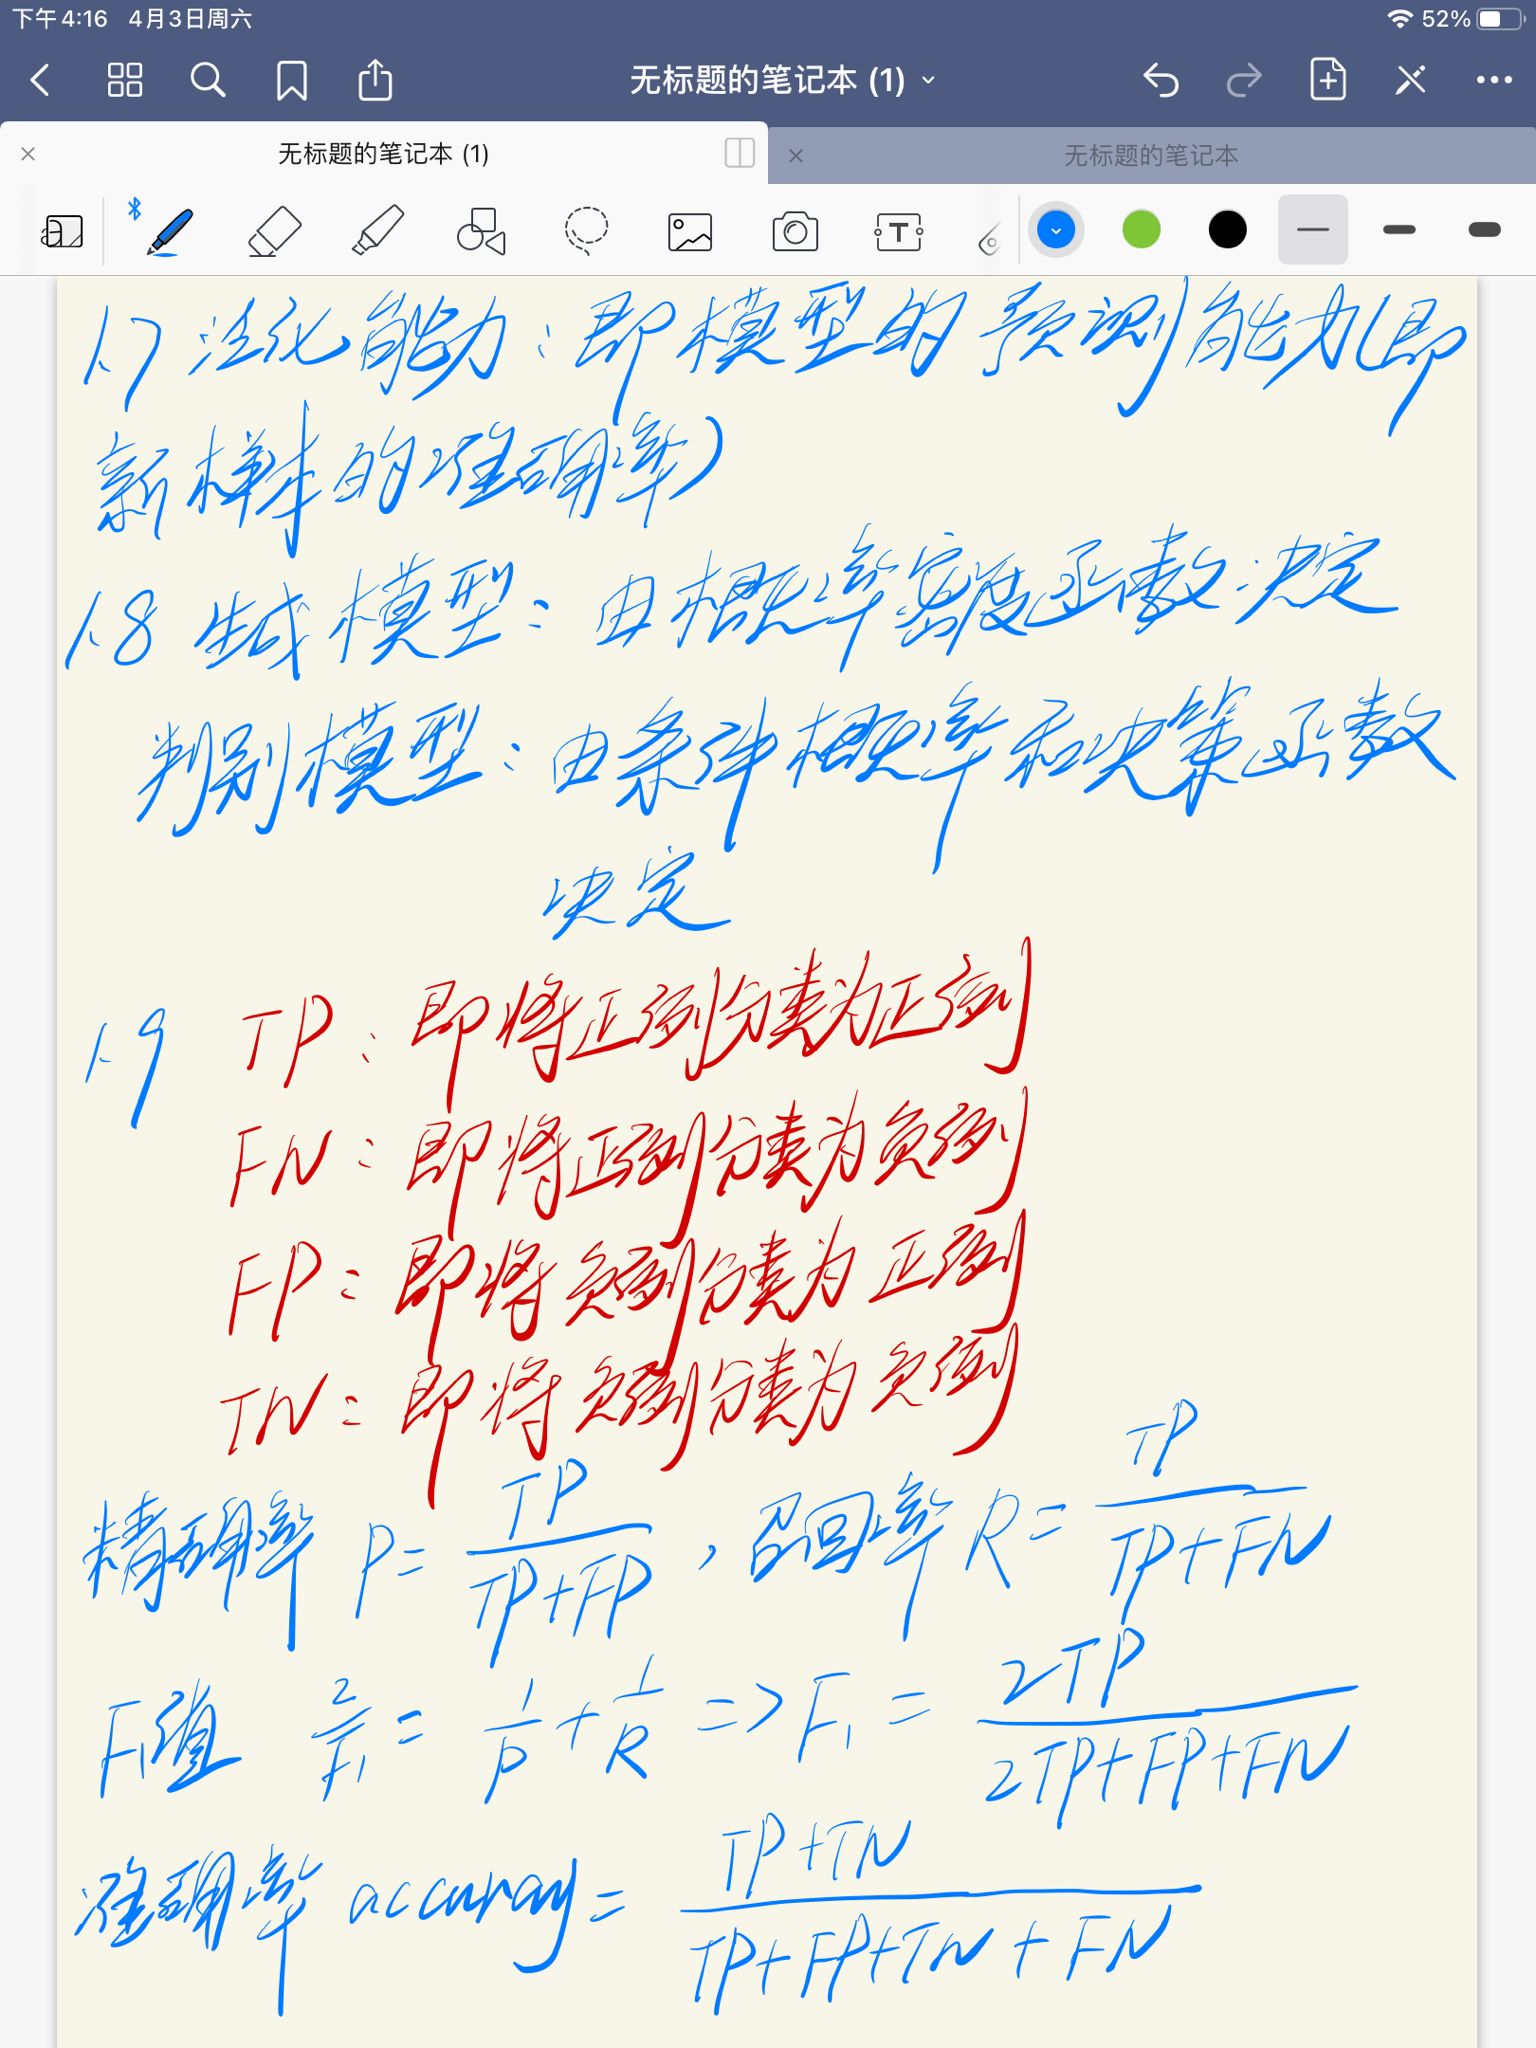 下午4:16 4月3日周六 52%
无标题的笔记本 (1)
无标题的笔记本 (1) 无标题的笔记本
1.7 泛化能力：即模型的预测能力(即
新样本的准确率)
1.8 生成模型：由概率密度函数决定
判别模型：由条件概率和决策函数
决定
1.9 TP：即将正例分类为正例
FN：即将正例分类为负例
FP：即将负例分类为正例
TN：即将负例分类为负例
精确率 P = TP / (TP+FP) , 召回率 R = TP / (TP+FN)
F₁值 2/F₁ = 1/P + 1/R => F₁ = 2TP / (2TP+FP+FN)
准确率 accuray = (TP+TN) / (TP+FP+TN+FN)